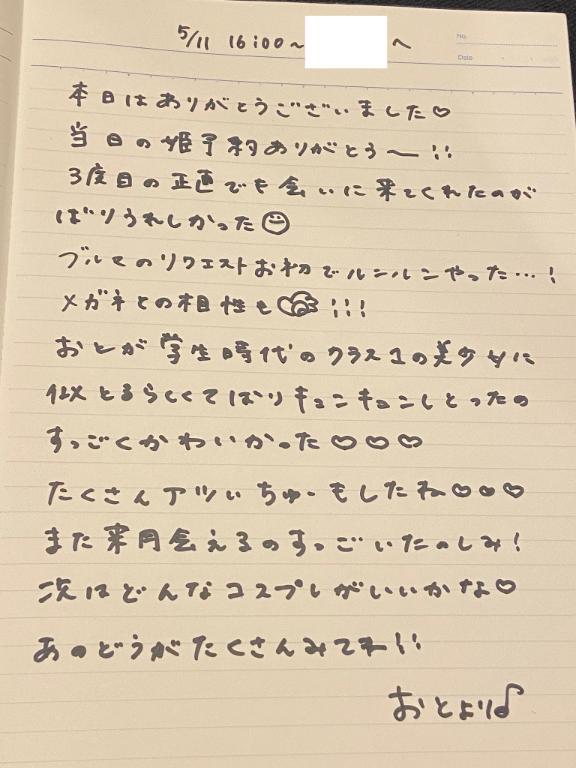 No.
Date
5/11 16:00~ へ
本日はありがとうございました♡
当日の姫予約ありがとう〜!!
3度目の正直でも会いに来てくれたのが
ばりうれしかった☺
ブルマのリクエストお初でルンルンやった…!
メガネとの相性も !!!
おとが学生時代のクラス1の美少女に
似とるらしくてばりキュンキュンしとったの
すっごくかわいかった♡♡♡
たくさんアツいちゅーもしたね♡♡♡
また来月会えるのすっごいたのしみ!
次はどんなコスプレがいいかな♡
あのどうがたくさんみてね!!
おとより♪